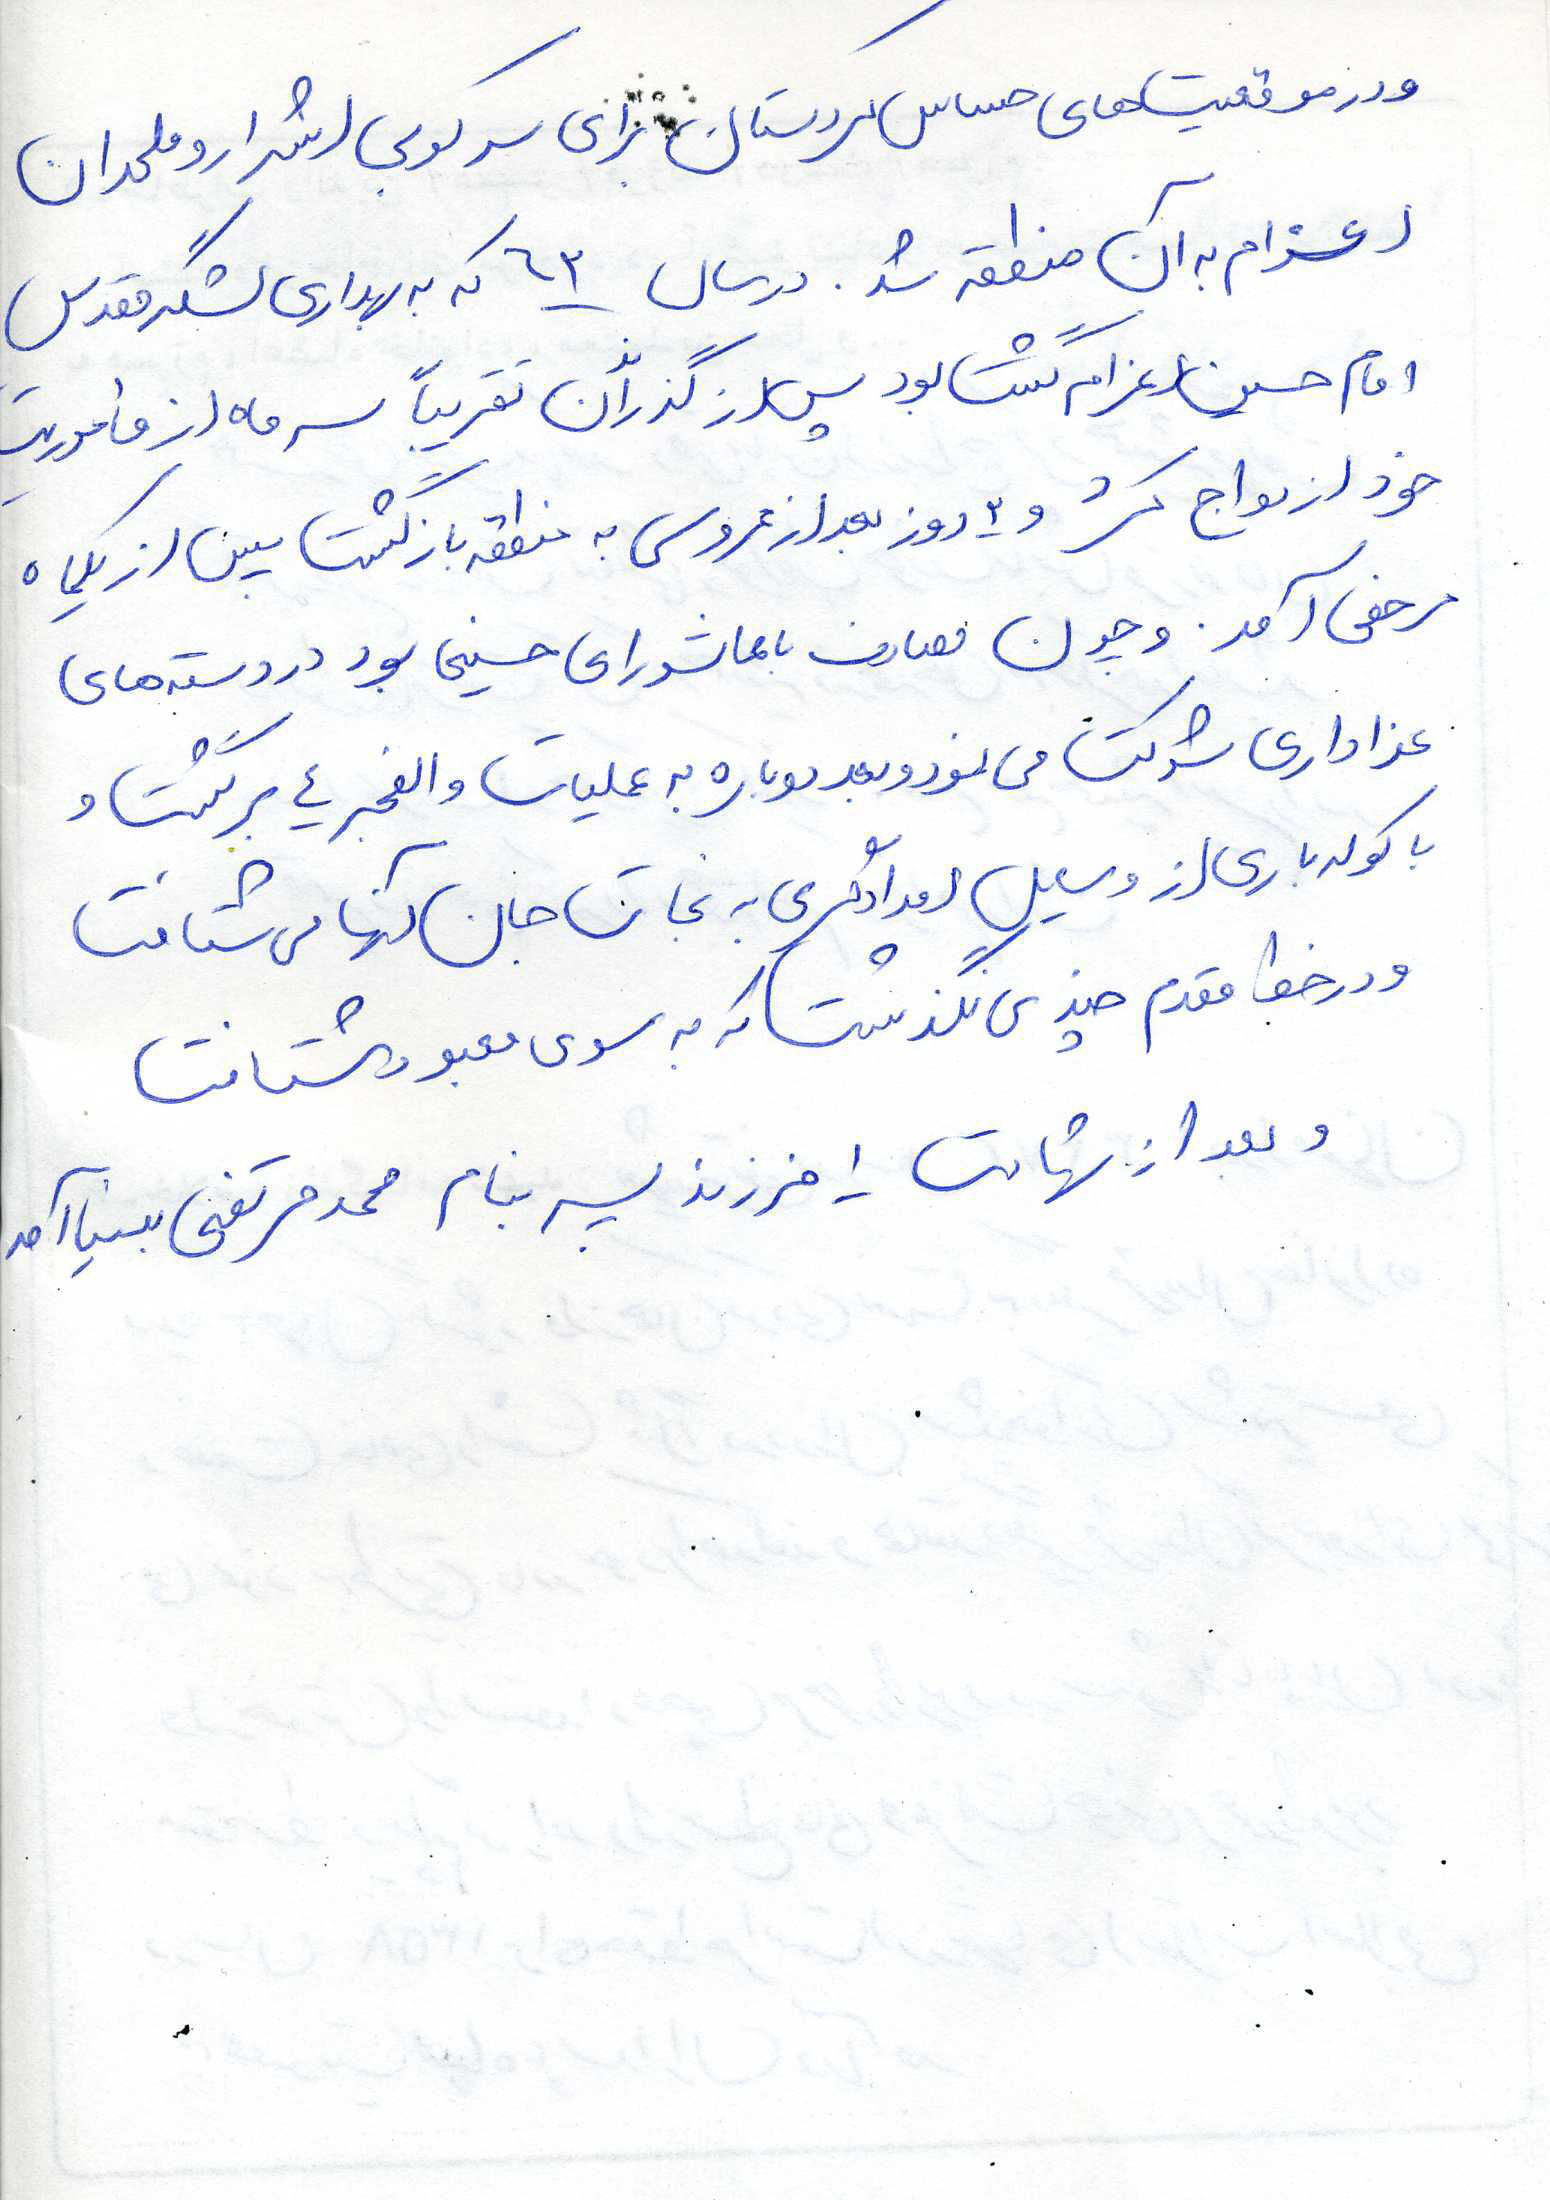 و در موقعیت‌های حساس کردستان برای سرکوبی اشرار و ملحدان
اعزام به آن منطقه شد. در سال ٦٣ که به بهداری لشگر مقدس
امام حسین اعزام گشت بود پس از گذراندن تقریباً سه ماه از مأموریت
خود ازدواج کرد و ٣ روز بعد از عروسی به منطقه بازگشت پس از یکماه
مرخصی آمد. و چون مصادف با عاشورای حسینی بود در دسته‌های
عزاداری شرکت می نمود و بعد دوباره به عملیات والفجر ٤ برگشت و
با کوله باری از وسایل امدادگری به نجات جان آنها می شتافت
و در خط مقدم چیزی نگذشت که به سوی معبود شتافت
و بعد از شهادت ١ فرزند پسر بنام محمد مرتضی بدنیا آمد